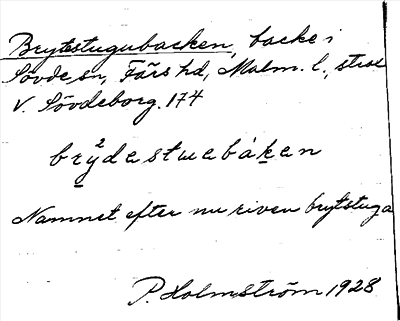 Brytestugubacken, backe i
Sövde sn, Färs hd, Malm. l., strax
V. Sövdeborg. 174
brỳ²destuebáken
Namnet efter nu riven brytstuga
P. Holmström 1928